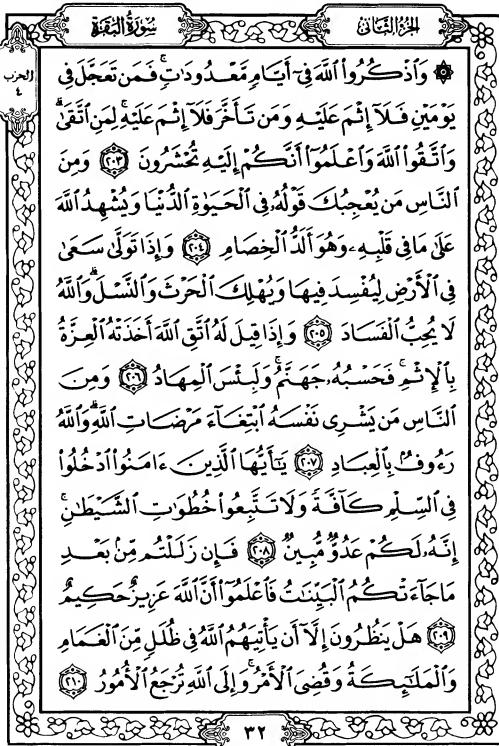 سُورَةُ البَقَرَةِ
الجُزْءُ الثَّانِي
الحزب
٤
۞ وَٱذْكُرُوا۟ ٱللَّهَ فِىٓ أَيَّامٍ مَّعْدُودَٰتٍ ۚ فَمَن تَعَجَّلَ فِى
يَوْمَيْنِ فَلَآ إِثْمَ عَلَيْهِ وَمَن تَأَخَّرَ فَلَآ إِثْمَ عَلَيْهِ ۚ لِمَنِ ٱتَّقَىٰ ۗ
وَٱتَّقُوا۟ ٱللَّهَ وَٱعْلَمُوٓا۟ أَنَّكُمْ إِلَيْهِ تُحْشَرُونَ ٢٠٣ وَمِنَ
ٱلنَّاسِ مَن يُعْجِبُكَ قَوْلُهُۥ فِى ٱلْحَيَوٰةِ ٱلدُّنْيَا وَيُشْهِدُ ٱللَّهَ
عَلَىٰ مَا فِى قَلْبِهِۦ وَهُوَ أَلَدُّ ٱلْخِصَامِ ٢٠٤ وَإِذَا تَوَلَّىٰ سَعَىٰ
فِى ٱلْأَرْضِ لِيُفْسِدَ فِيهَا وَيُهْلِكَ ٱلْحَرْثَ وَٱلنَّسْلَ ۗ وَٱللَّهُ
لَا يُحِبُّ ٱلْفَسَادَ ٢٠٥ وَإِذَا قِيلَ لَهُ ٱتَّقِ ٱللَّهَ أَخَذَتْهُ ٱلْعِزَّةُ
بِٱلْإِثْمِ ۚ فَحَسْبُهُۥ جَهَنَّمُ ۚ وَلَبِئْسَ ٱلْمِهَادُ ٢٠٦ وَمِنَ
ٱلنَّاسِ مَن يَشْرِى نَفْسَهُ ٱبْتِغَآءَ مَرْضَاتِ ٱللَّهِ ۗ وَٱللَّهُ
رَءُوفٌۢ بِٱلْعِبَادِ ٢٠٧ يَٰٓأَيُّهَا ٱلَّذِينَ ءَامَنُوا۟ ٱدْخُلُوا۟
فِى ٱلسِّلْمِ كَآفَّةً وَلَا تَتَّبِعُوا۟ خُطُوَٰتِ ٱلشَّيْطَٰنِ ۚ
إِنَّهُۥ لَكُمْ عَدُوٌّ مُّبِينٌ ٢٠٨ فَإِن زَلَلْتُم مِّنۢ بَعْدِ
مَا جَآءَتْكُمُ ٱلْبَيِّنَٰتُ فَٱعْلَمُوٓا۟ أَنَّ ٱللَّهَ عَزِيزٌ حَكِيمٌ
٢٠٩ هَلْ يَنظُرُونَ إِلَّآ أَن يَأْتِيَهُمُ ٱللَّهُ فِى ظُلَلٍ مِّنَ ٱلْغَمَامِ
وَٱلْمَلَٰٓئِكَةُ وَقُضِىَ ٱلْأَمْرُ ۚ وَإِلَى ٱللَّهِ تُرْجَعُ ٱلْأُمُورُ ٢١٠
٣٢